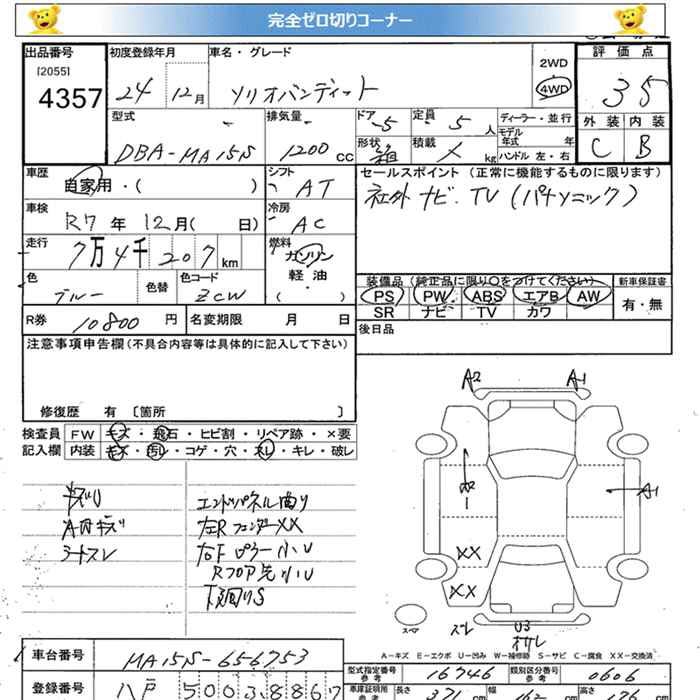 完全ゼロ切りコーナー
出品番号 初度登録年月 車名・グレード 評価点
[2055] 4357 24 12月 ソリオバンディット 2WD 4WD 35
型式 排気量 ドア 5 定員 5人 ディーラー・並行 外装 内装
DBA-MA15S 1200cc 形状 箱 積載 kg モデル年式 年 C B
ハンドル 左・右
車歴 自家用・( ) シフト AT セールスポイント (正常に機能するものに限ります)
車検 R7年12月( 日) 冷房 AC 社外 ナビ.TV (パナソニック)
走行 7万4千207km 燃料 ガソリン
色 ブルー 色替 色コード ZCW 軽油 ・ ( )
装備品 (純正品に限り○をつけてください) 新車保証書
PS PW ABS エアB AW 有・無
SR ナビ TV カワ
R券 10800円 名変期限 月 日 後日品
注意事項申告欄 (不具合内容等は具体的に記入して下さい)
修復歴 有 〔箇所 〕
検査員 FW キズ・飛石・ヒビ割・リペア跡・×要
記入欄 内装 キズ・汚レ・コゲ・穴・スレ・キレ・破レ
キズU エンドパネル曲り
A内キズ 左RフェンダーXX
シートスレ 右Fピラー小U
Rフロア先小U
下廻りS
A2 A1
A1
XX
XX
スペア U3
A-キズ E-エクボ U-凹み W-補修跡 S-サビ C-腐食 XX-交換済
車台番号 MA15S-656753 型式指定番号 参考 16746 類別区分番号 参考 0606
登録番号 八戸 500 3 8867 車庫証明用 参考 長さ 371 cm 幅 cm 高さ cm